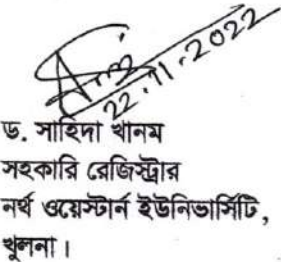 22.11.2022
ড. সাহিদা খানম
সহকারি রেজিস্ট্রার
নর্থ ওয়েস্টার্ন ইউনিভার্সিটি,
খুলনা।